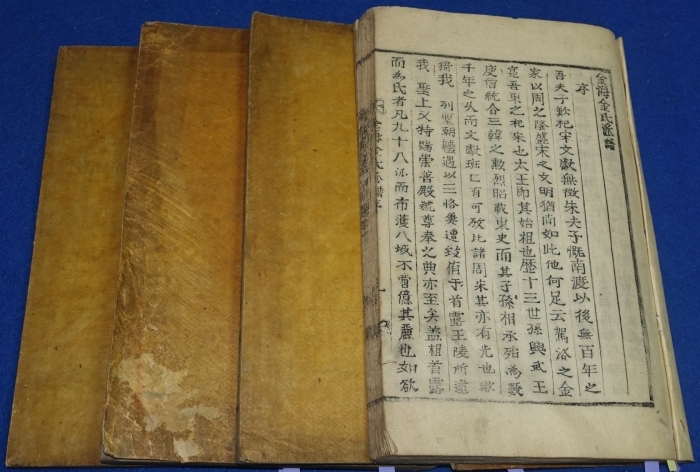 金海金氏派譜
序
吾夫子歎杞宋文獻無徵朱夫子慨南渡以後無百年之
家以周之隆盛宋之文明猶尙如此他何足云駕洛之金
寔吾東之杞宋也太王卽其始祖也歷十三世孫興武王
庾信統合三韓之勳烈昭載東史而其子孫相承殆爲數
千年之久而文獻班匕有可攷比諸周宋其亦有光也歟
我 列聖朝禮遇以三恪婁遭致侑于首露王陵所逮
我 聖上又特賜崇善殿號尊奉之典亦至矣盖祖首露
而爲氏者凡九十八派而布濩八域不啻億其麗也如欲